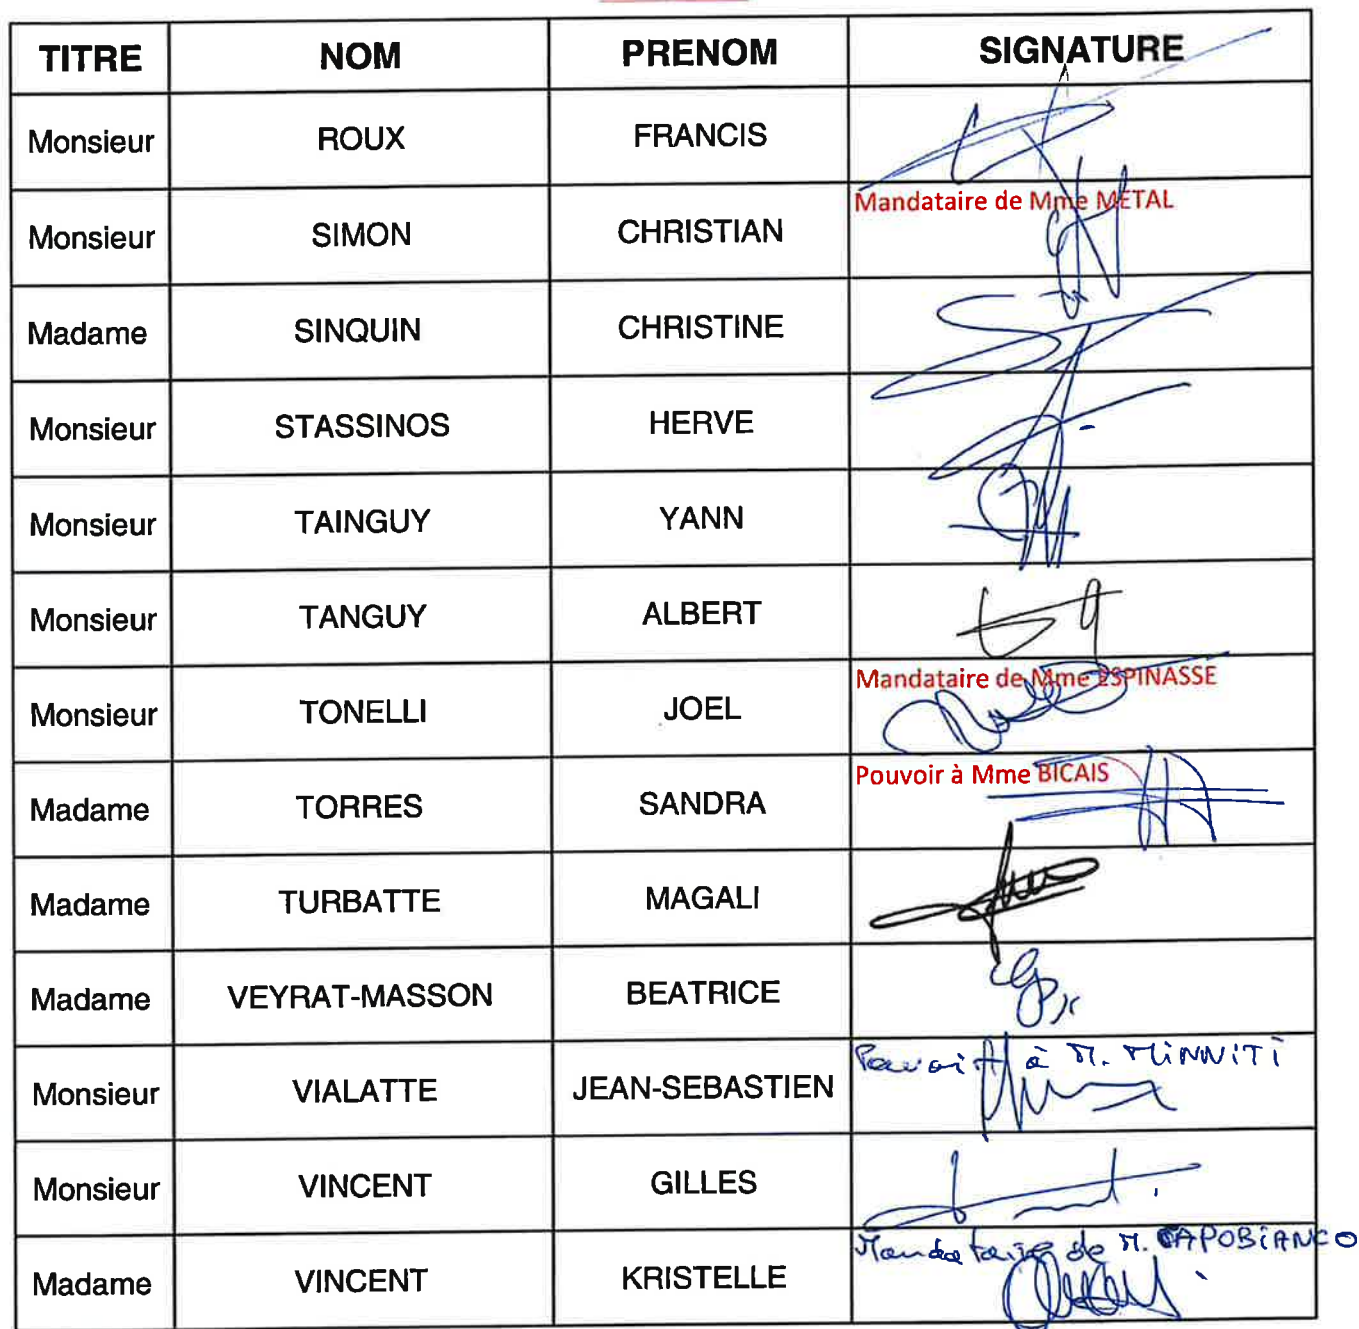 TITRE NOM PRENOM SIGNATURE
Monsieur ROUX FRANCIS
Monsieur SIMON CHRISTIAN Mandataire de Mme METAL
Madame SINQUIN CHRISTINE
Monsieur STASSINOS HERVE
Monsieur TAINGUY YANN
Monsieur TANGUY ALBERT
Monsieur TONELLI JOEL Mandataire de Mme ESPINASSE
Madame TORRES SANDRA Pouvoir à Mme BICAIS
Madame TURBATTE MAGALI
Madame VEYRAT-MASSON BEATRICE
Monsieur VIALATTE JEAN-SEBASTIEN Pouvoir à M. MiNNiTi
Monsieur VINCENT GILLES
Madame VINCENT KRISTELLE Mandataire de M. CAPOBiANCO